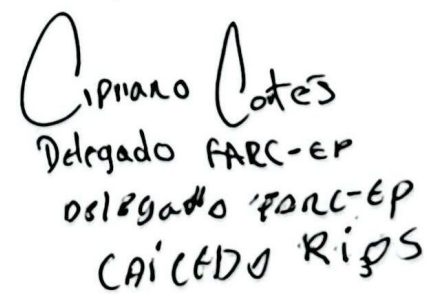 Cipriano Cortes
Delegado FARC-EP
Delegado FARC-EP
CAiCEDO RiOS